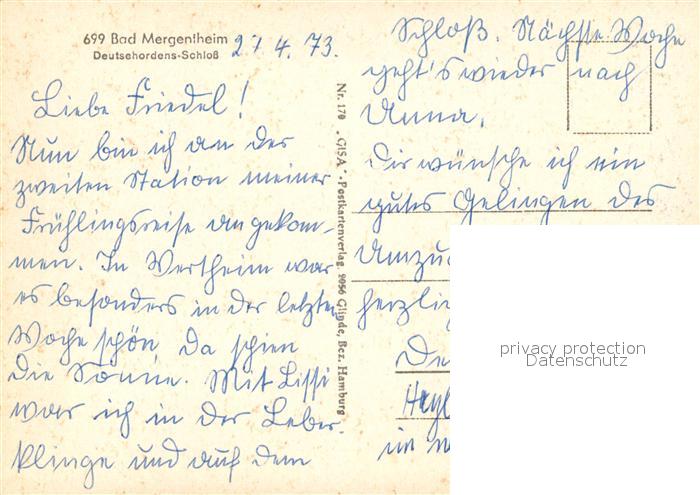 699 Bad Mergentheim
Deutschordens-Schloß
27 4. 73.
Liebe Friedel!
Nun bin ich an der
zweiten Station meiner
Frühlingsreise angekom-
men. In Wertheim war
es besonders in der letzten
Woche schön, da schien
die Sonne. Mit Lissi
war ich in der Leber-
klinge und auf dem
Nr. 170 „GISA“-Postkartenverlag, 2056 Glinde, Bez. Hamburg
Schloß. Nächste Woche
geht's wieder nach
Unna.
Dir wünsche ich ein
gutes Gelingen des
Umzu
herzli
De
im
privacy protection
Datenschutz